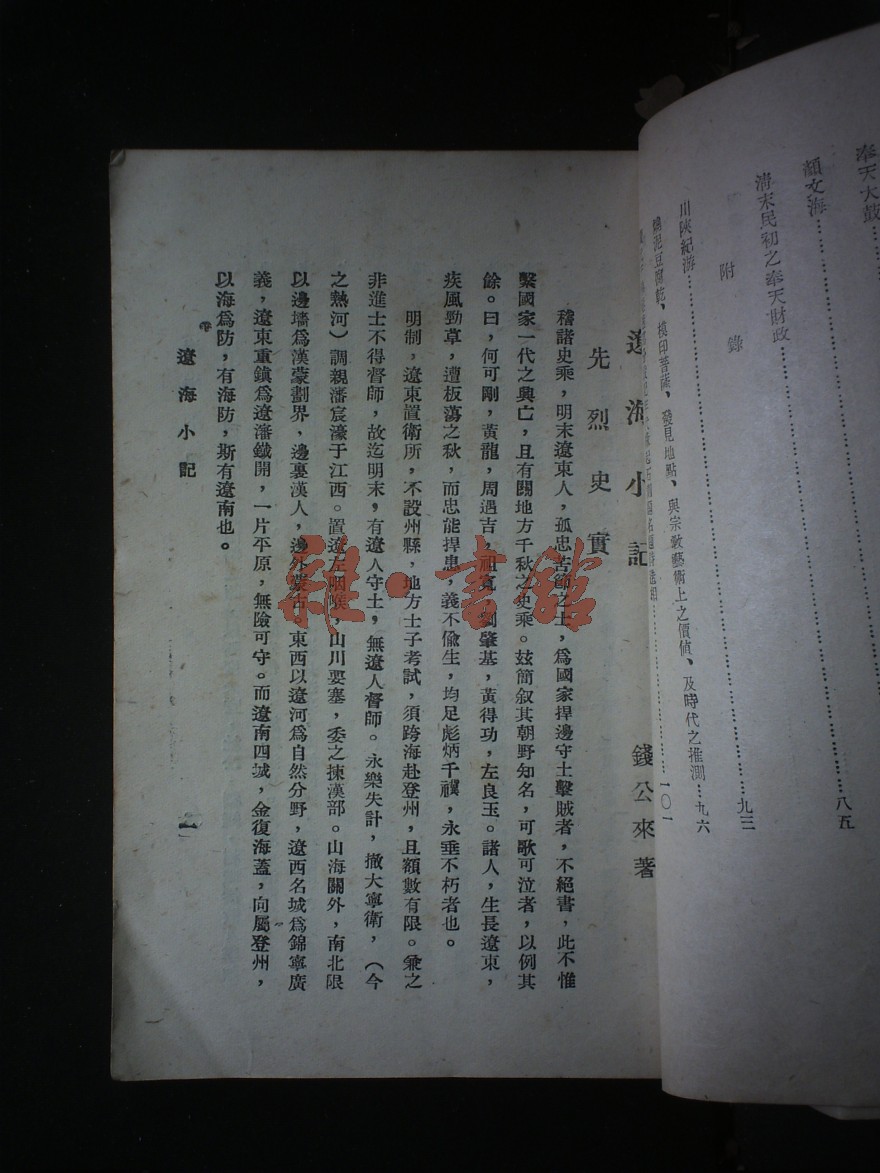 奉天大鼓
八五
顏文海
清末民初之奉天財政
九三
附錄
川陝紀游
九六
模印菩薩、發見地點、與宗教藝術上之價值、及時代之推測
一〇一
遼海小記
錢公來著
先烈史實
稽諸史乘，明末遼東人，孤忠苦節之士，爲國家捍邊守土擊賊者，不絕書，此不惟
繫國家一代之興亡，且有關地方千秋之史乘。玆簡叙其朝野知名，可歌可泣者，以例其
餘。曰，何可剛，黃龍，周遇吉，祖寬，劉肇基，黃得功，左良玉。諸人，生長遼東，
疾風勁草，遭板蕩之秋，而忠能捍患，義不偸生，均足彪炳千禩，永垂不朽者也。
明制，遼東置衛所，不設州縣，地方士子考試，須跨海赴登州，且額數有限。兼之
非進士不得督師，故迄明末，有遼人守土，無遼人督師。永樂失計，撤大寧衛，（今
之熱河）調親藩宸濠于江西。置遼左咽喉，山川要塞，委之揀漢部。山海關外，南北限
以邊墻爲漢蒙劃界，邊裏漢人，邊外蒙古。東西以遼河爲自然分野，遼西名城爲錦寧廣
義，遼東重鎮爲遼瀋鐵開，一片平原，無險可守。而遼南四城，金復海蓋，向屬登州，
以海爲防，有海防，斯有遼南也。
遼海小記
一
雜·書館